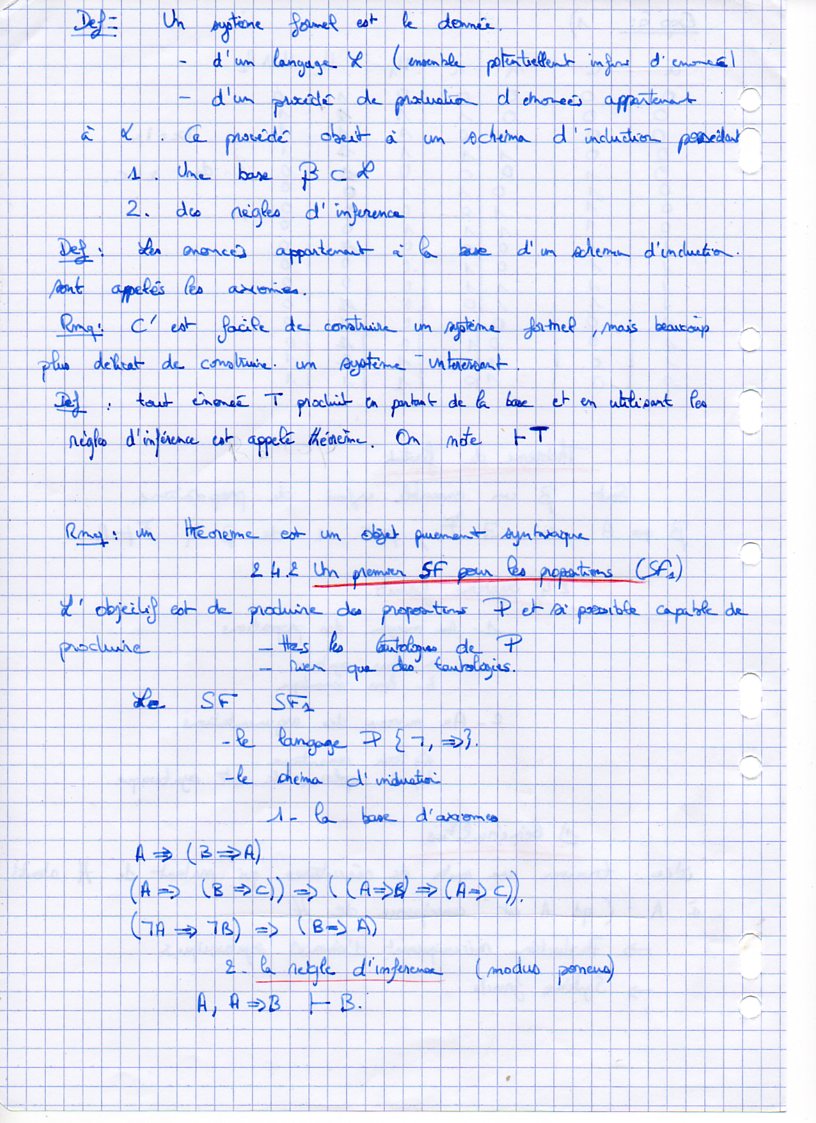 Def : Un système formel est la donnée.
- d'un langage L (ensemble potentiellement infini d'énoncés)
- d'un procédé de production d'énoncés appartenant
à L. Ce procédé obeit à un schema d'induction possédant
1. Une base B ⊂ L
2. des règles d'inference
Def : Les enoncés appartenant à la base d'un schema d'induction.
sont appelés les axiomes.
Rmq: C'est facile de construire un système formel, mais beaucoup
plus délicat de construire. un système interessant.
Def : tout énoncé T produit en partant de la base et en utilisant les
règles d'inférence est appelé théorème. On note ⊢ T
Rmq : un théoreme est un objet purement syntaxique
2 4.2 Un premier SF pour les propositions (SF1)
L'objectif est de produire des propositions P et si possible capable de
produire - ttes les tautologies de P
- rien que des tautologies.
Le SF SF1
- le langage P {¬, ⇒}.
- le schéma d'induction
1- la base d'axiomes
A ⇒ (B ⇒ A)
(A ⇒ (B ⇒ C)) ⇒ ((A ⇒ B) ⇒ (A ⇒ C)).
(¬A ⇒ ¬B) ⇒ (B ⇒ A)
2- la règle d'inférence (modus ponens)
A, A ⇒ B ⊢ B.